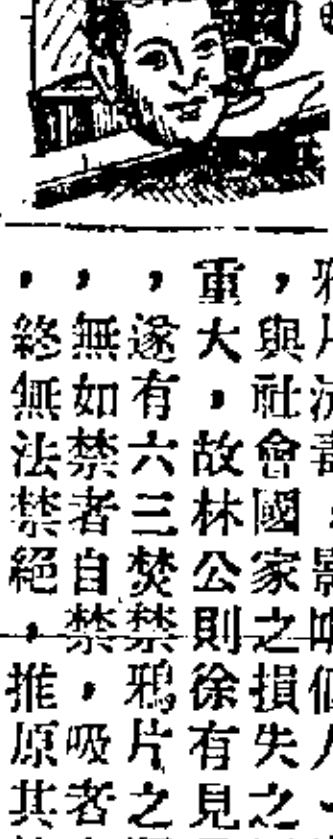 ，與社會國家之損失之
重大，故林公則徐有見
，遂有六三焚禁鴉片之
，無如禁者自禁，吸者
，終無法禁絕，推原其